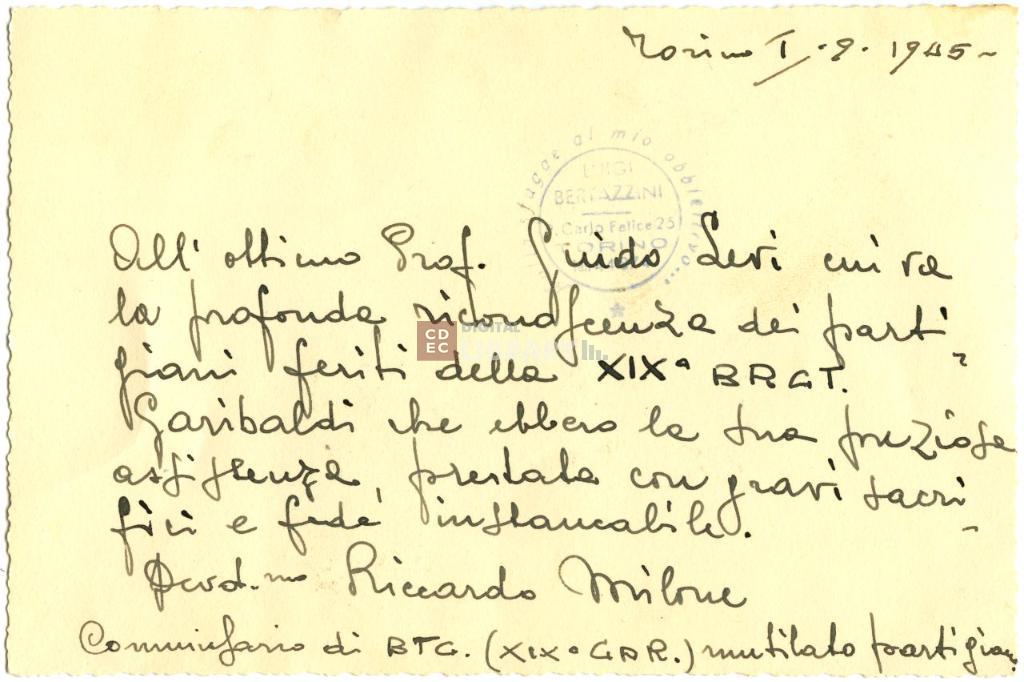 Torino I.9.1945
fugge al mio obbiettivo...
LUIGI
BERTAZZINI
Carlo Felice 25
TORINO
All'ottimo Prof. Guido Levi cui va
la profonda riconoscenza dei parti
giani feriti della XIXª BRGT.
Garibaldi che ebbero la sua preziosa
assistenza, prestata con gravi sacri
fici e fede instancabile.
Devd.mo Riccardo Milone
Commissario di BTG. (XIXª GAR.) mutilato partigiano
CDEC DIGITAL
LIBRARY